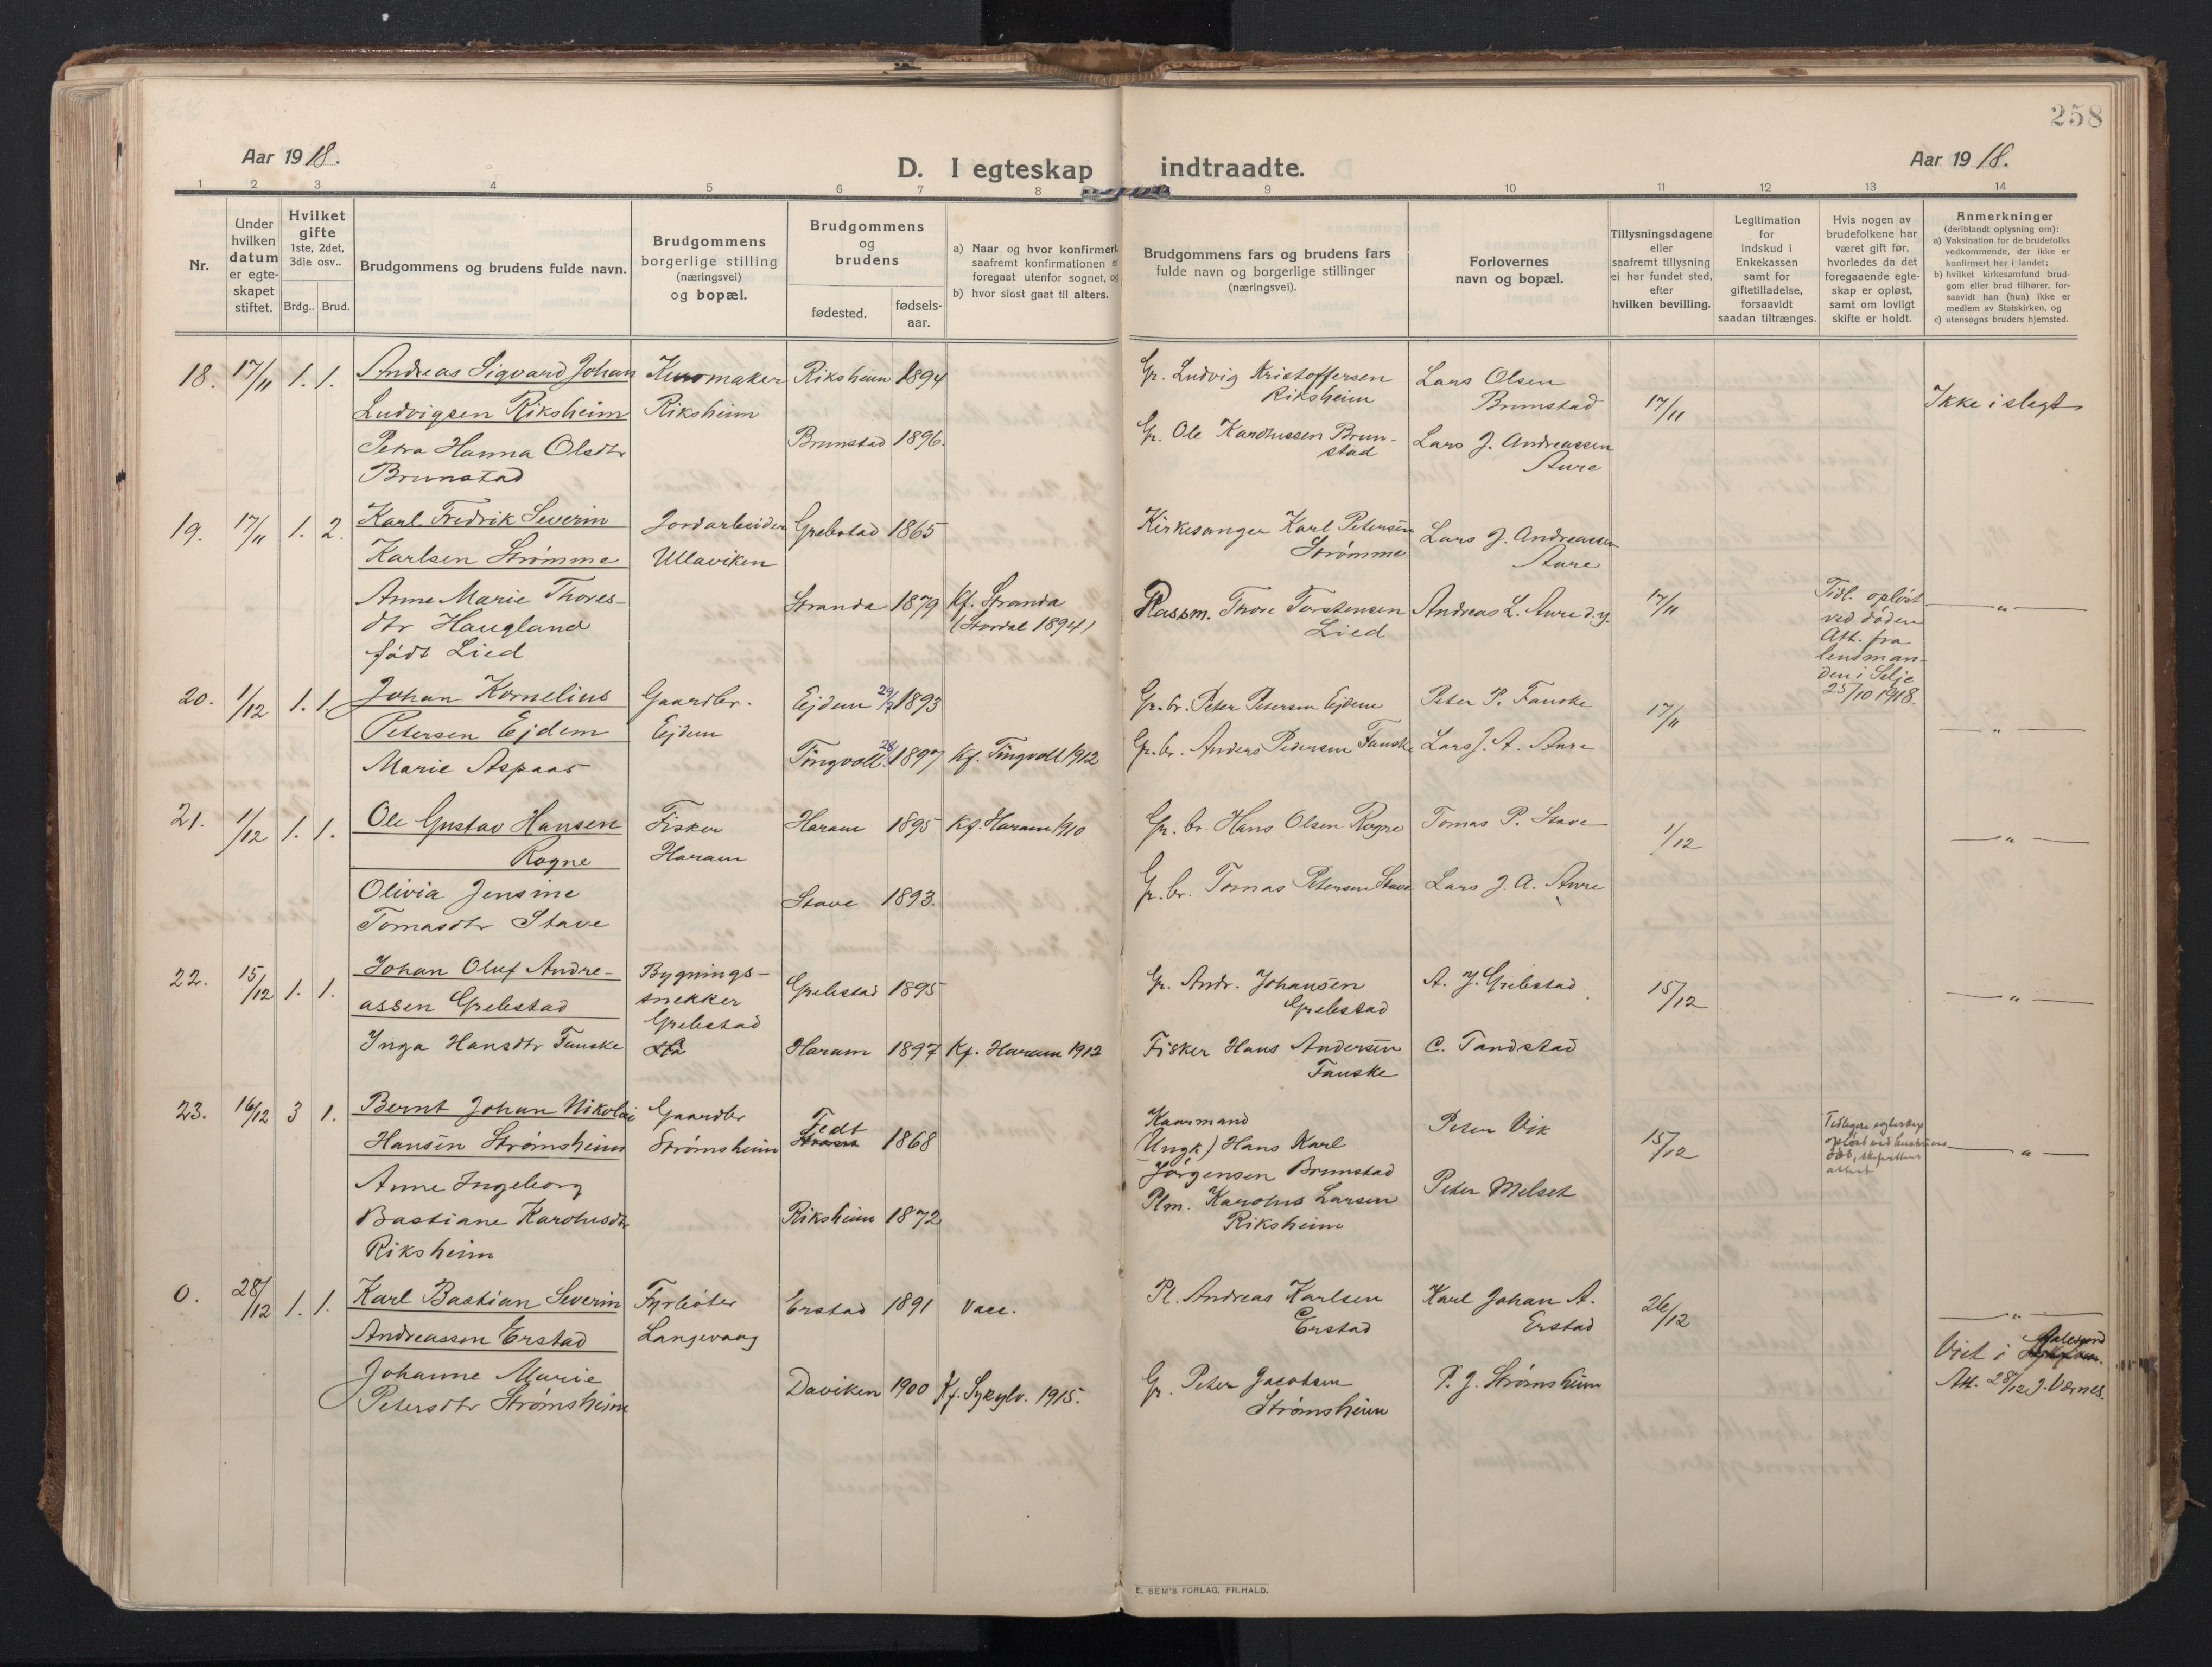 258
Aar 1918.
D. I egteskap indtraadte.
Aar 1918.
1 2 3 4 5 6 7 8 9 10 11 12 13 14
Nr.
Under
hvilken
datum
er egte-
skapet
stiftet.
Hvilket
gifte
1ste, 2det,
3die osv..
Brdg.. Brud.
Brudgommens og brudens fulde navn.
Brudgommens
borgerlige stilling
(næringsvei)
og bopæl.
Brudgommens
og
brudens
fødested.
fødsels-
aar.
a) Naar og hvor konfirmert
saafremt konfirmationen er
foregaat utenfor sognet, og
b) hvor sidst gaat til alters.
Brudgommens fars og brudens fars
fulde navn og borgerlige stillinger
(næringsvei).
Forlovernes
navn og bopæl.
Tillysningsdagene
eller
saafremt tillysning
ei har fundet sted,
efter
hvilken bevilling.
Legitimation
for
indskud i
Enkekassen
samt for
giftetilladelse,
forsaavidt
saadan tiltrænges.
Hvis nogen av
brudefolkene har
været gift før,
hvorledes da det
foregaaende egte-
skap er opløst,
samt om lovligt
skifte er holdt.
Anmerkninger
(deriblandt oplysning om):
a) Vaksination for de brudefolks
vedkommende, der ikke er
konfirmert her i landet;
b) hvilket kirkesamfund brud-
gom eller brud tilhører, for-
saavidt han (hun) ikke er
medlem av Statskirken, og
c) utensogns bruders hjemsted.
18. 17/11 1. 1.
Andreas Sigvard Johan
Ludvigsen Riksheim
Petra Hanna Olsdtr
Brunstad
Kurvmaker
Riksheim
Riksheim 1894
Brunstad 1896.
Gr. Ludvig Kristoffersen
Riksheim
Gr. Ole Karolussen Brun-
stad
Lars Olsen
Brunstad
Lars J. Andreassen
Aure
17/11
Ikke i slegt
19. 17/11 1. 2.
Karl Fredrik Severin
Karlsen Strømme
Anne Marie Thores-
dtr Haugland
født Lied
Jordarbeider
Ullaviken
Grebstad 1865
Stranda 1879
Kf. Stranda
(Stordal 1894)
Kirkesanger Karl Petersen
Strømme
Plassm. Thore Torstensen
Lied
Lars J. Andreassen
Aure
Andreas L. Aure d.y.
17/11
Tidl. opløst
ved døden
Att. fra
lensman-
den i Selje
25/10 1918.
— " —
20. 1/12 1. 1.
Johan Kornelius
Petersen Ejdem
Marie Aspaas
Gaardbr.
Ejdem
Ejdem 1893
Tingvoll 1897 Kf. Tingvoll 1912
Gr.br. Peter Petersen Ejdem
Gr.br. Anders Pedersen Fauske
Peter P. Fauske
Lars J. A. Aure
17/11
— " —
21. 1/12 1. 1.
Ole Gustav Hansen
Rogne
Olivia Jensine
Tomasdtr Stave
Fisker
Haram
Haram 1895 Kf. Haram 1910
Stave 1893.
Gr. br. Hans Olsen Rogne
Gr. br. Tomas Petersen Stave
Tomas P. Stave
Lars J. A. Aure
1/12
— " —
22. 15/12 1. 1.
Johan Oluf Andre-
assen Grebstad
Inga Hansdtr Fauske
Bygnings-
snekker
Grebstad
Grebstad 1895
Haram 1897 Kf. Haram 1912
Gr. Andr. Johansen
Grebstad
Fisker Hans Andersen
Fauske
A. J. Grebstad
C. Tandstad
15/12
— " —
23. 16/12 3 1.
Bernt Johan Nikolai
Hansen Strømsheim
Anne Ingeborg
Bastiane Karolusdtr
Riksheim
Gaardbr
Strømsheim
1868
Riksheim 1872
Kaarmand
(Ungk) Hans Karl
Jørgensen Brunstad
Plm. Karolus Larsen
Riksheim
Peter Vik
Peter Melset
15/12
Tidligere egteskap
opløst ved hustruens
død, skifterettens
attest
— " —
0. 28/12 1. 1.
Karl Bastian Severin
Andreassen Erstad
Johanne Marie
Petersdtr Strømsheim
Fyrbøter
Langevaag
Erstad 1891 Vacc.
Daviken 1900 Kf. Sykylv. 1915.
Pl. Andreas Karlsen
Erstad
Gr. Peter Jacobsen
Strømsheim
Karl Johan A.
Erstad
P. J. Strømsheim
26/12
— " —
Viet i Aalesund
Att. 28/12 J. Værnes.
E. SEM'S FORLAG, FR.HALD.